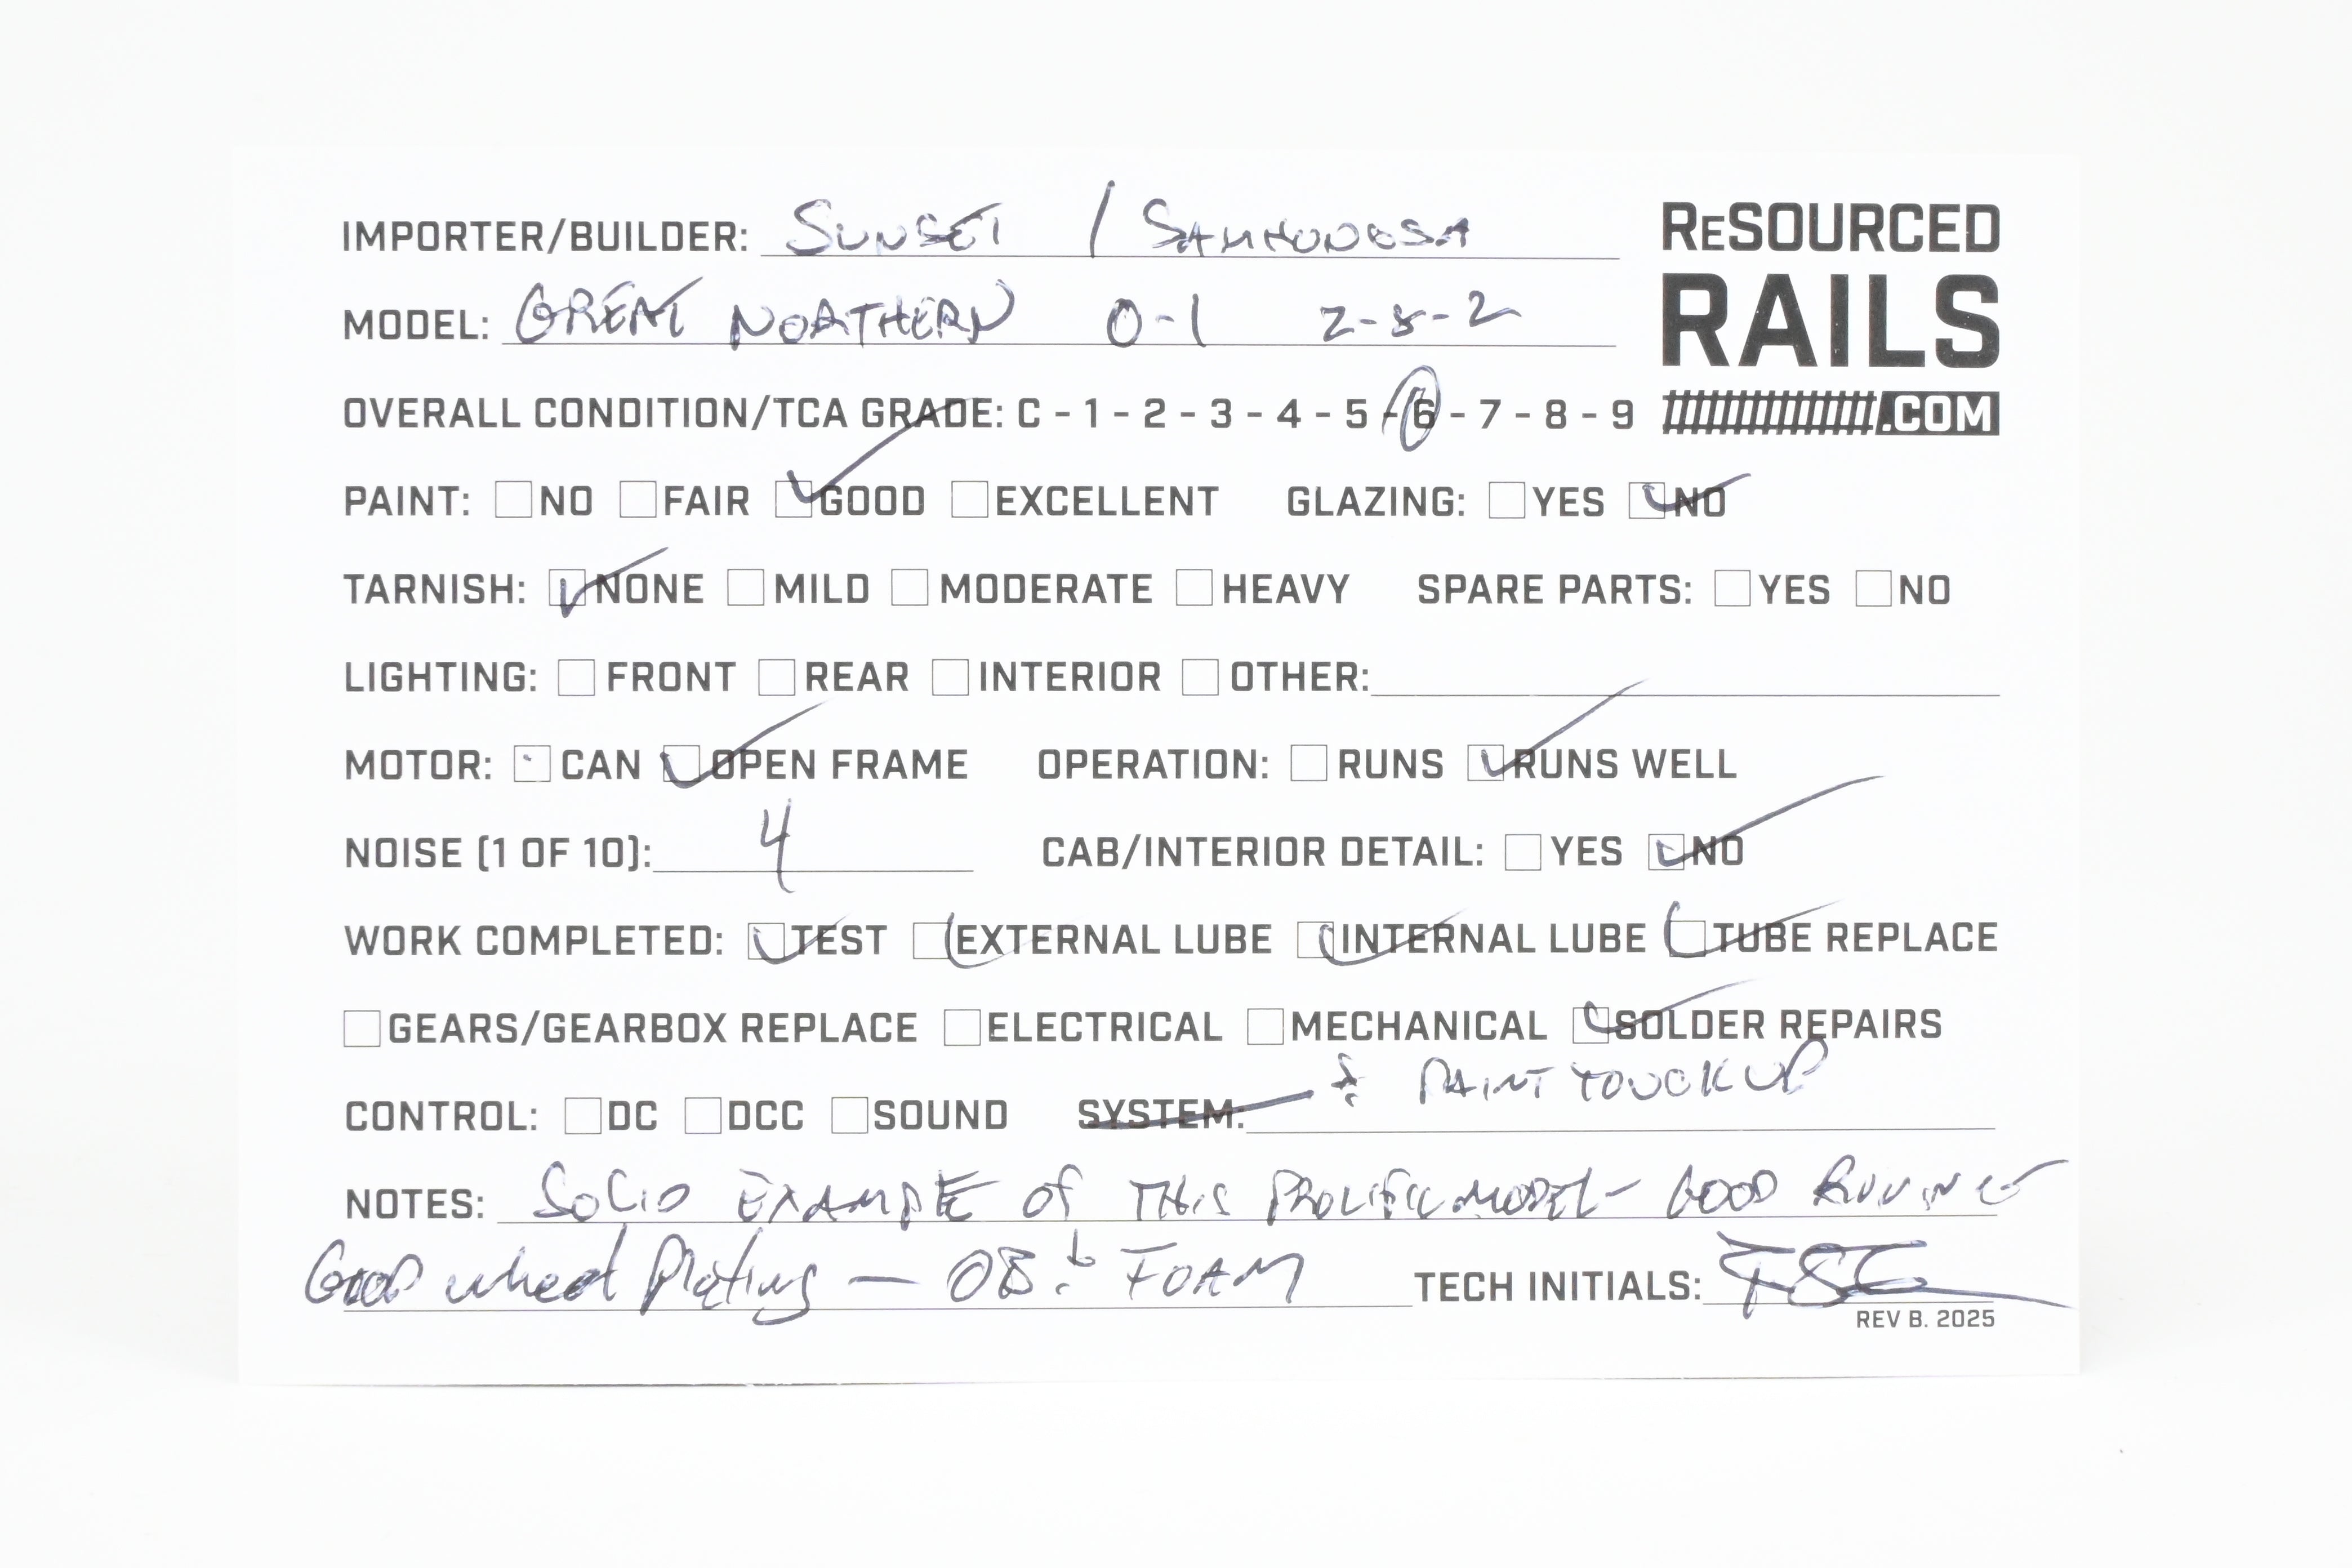 IMPORTER/BUILDER: SUNSET / SAMHONGSA
RESOURCED
MODEL: GREAT NORTHERN O-1 2-8-2
RAILS
OVERALL CONDITION/TCA GRADE: C - 1 - 2 - 3 - 4 - 5 - 6 - 7 - 8 - 9
.COM
PAINT: NO FAIR GOOD EXCELLENT GLAZING: YES NO
TARNISH: NONE MILD MODERATE HEAVY SPARE PARTS: YES NO
LIGHTING: FRONT REAR INTERIOR OTHER:
MOTOR: CAN OPEN FRAME OPERATION: RUNS RUNS WELL
NOISE (1 OF 10): 4 CAB/INTERIOR DETAIL: YES NO
WORK COMPLETED: TEST EXTERNAL LUBE INTERNAL LUBE TUBE REPLACE
GEARS/GEARBOX REPLACE ELECTRICAL MECHANICAL SOLDER REPAIRS
& PAINT TOUCH UP
CONTROL: DC DCC SOUND SYSTEM:
NOTES: SOLID EXAMPLE OF THIS PROLIFIC MODEL - GOOD RUNNER
Good wheel Plating — OB & FOAM
TECH INITIALS:
REV B. 2025